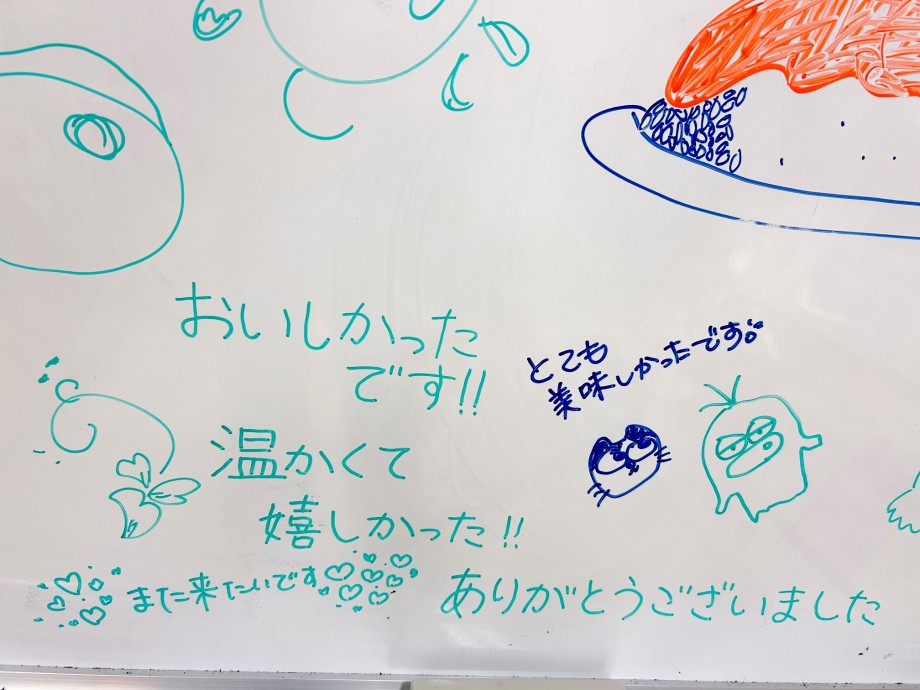 おいしかった
です!!
とても
美味しかったです。
温かくて
嬉しかった!!
また来たいです
ありがとうございました